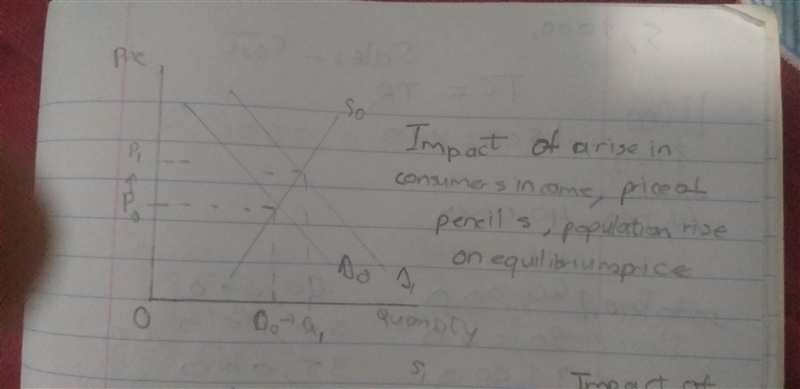 S,
Sales - Cost
TC = TR
Price
S0
P1
↑
P0
Impact of a rise in
consumers income, price of
pencils, population rise
on equilibrium price
D0
D1
O
Q0 → Q1
quantity
S1
Impact of